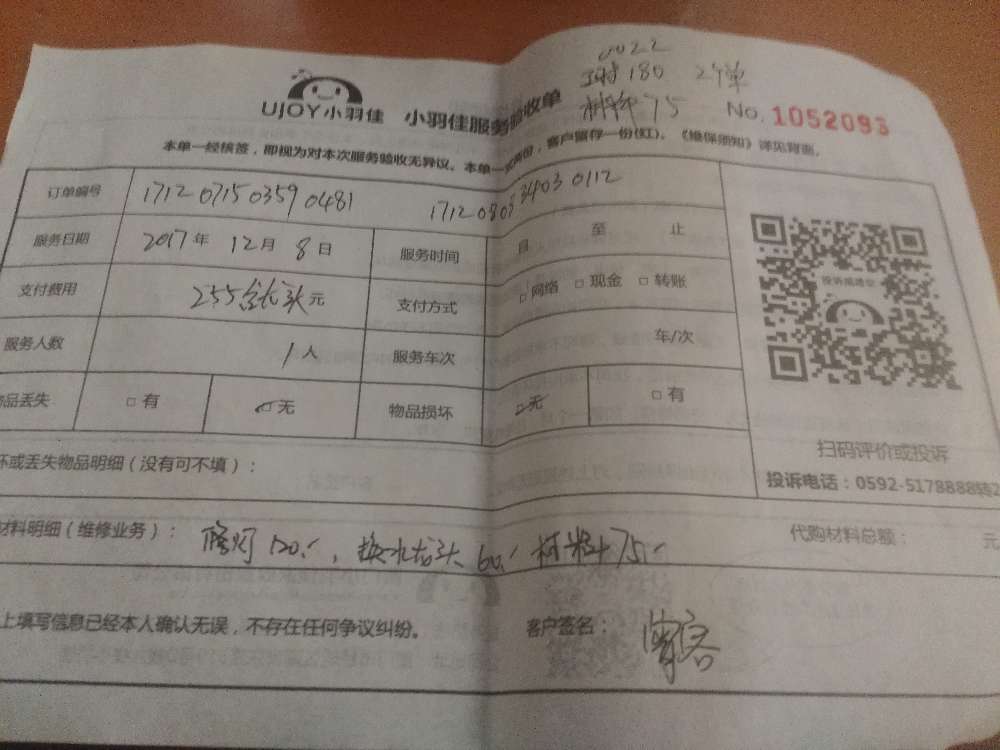 0022
工时180 2个单
材料75
UJOY小羽佳 小羽佳服务验收单 No. 1052093
本单一经核签，即视为对本次服务验收无异议。本单一式两份，客户留存一份(红)。《维保须知》详见背面。
订单编号 1712 0715 0359 0481 1712 0803 3403 0112
服务日期 2017年 12月 8日 服务时间 自 至 止
支付费用 255含龙头元 支付方式 □网络 □现金 □转账
服务人数 1人 服务车次 车/次
品丢失 □有 □无 物品损坏 □无 □有
投诉或建议
扫码评价或投诉
投诉电话：0592-5178888转2
坏或丢失物品明细（没有可不填）：
材料明细（维修业务）： 修灯120.-，换水龙头60.- 材料75.- 代购材料总额： 元
上填写信息已经本人确认无误，不存在任何争议纠纷。 客户签名：